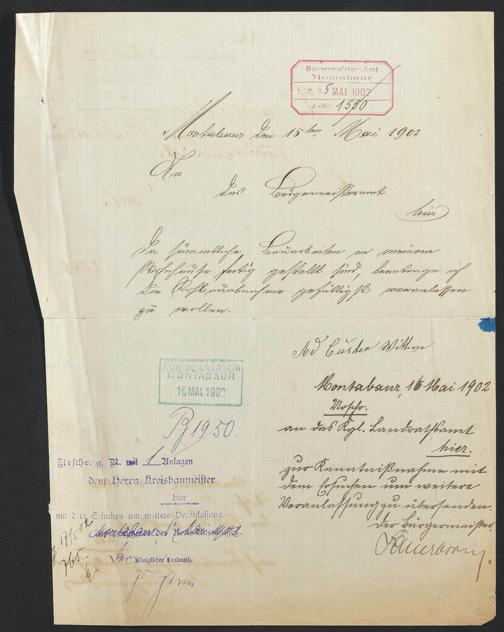 Bürgermeister-Amt
Montabaur
Eing. 15 MAI 1902
J.-No 1550
Montabaur den 15ten Mai 1902
An
das Bürgermeisteramt
hier
Da sämmtliche Bauarbeiten an meinem
Wohnhause fertig gestellt sind, beantrage ich
die Rohbauabnahme gefälligst veranlassen
zu wollen.
Ad Wittwe
KÖNIGL. LANDRATH
MONTABAUR
16 MAI 1902
Montabaur, 16 Mai 1902
Urschr.
an das Kgl. Landrathsamt
hier.
zur Kenntnißnahme mit
dem Ersuchen um weitere
Veranlassung zu übersenden.
Der Bürgermeister.
1950
Urschr. g. R. mit 1 Anlagen
dem Herrn Kreisbaumeister
hier
mit dem Ersuchen um weitere Veranlassung.
Der Königlicher Landrath.